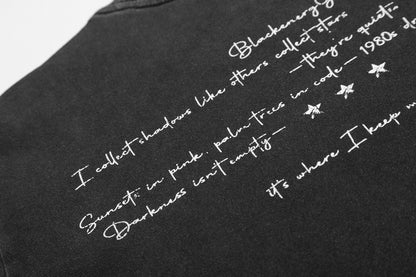 Blackenergy
I collect shadows like others collect stars
—they're quiet
Sunsets in pink, palm trees in code— 1980s
Darkness isn't empty—
it's where I keep